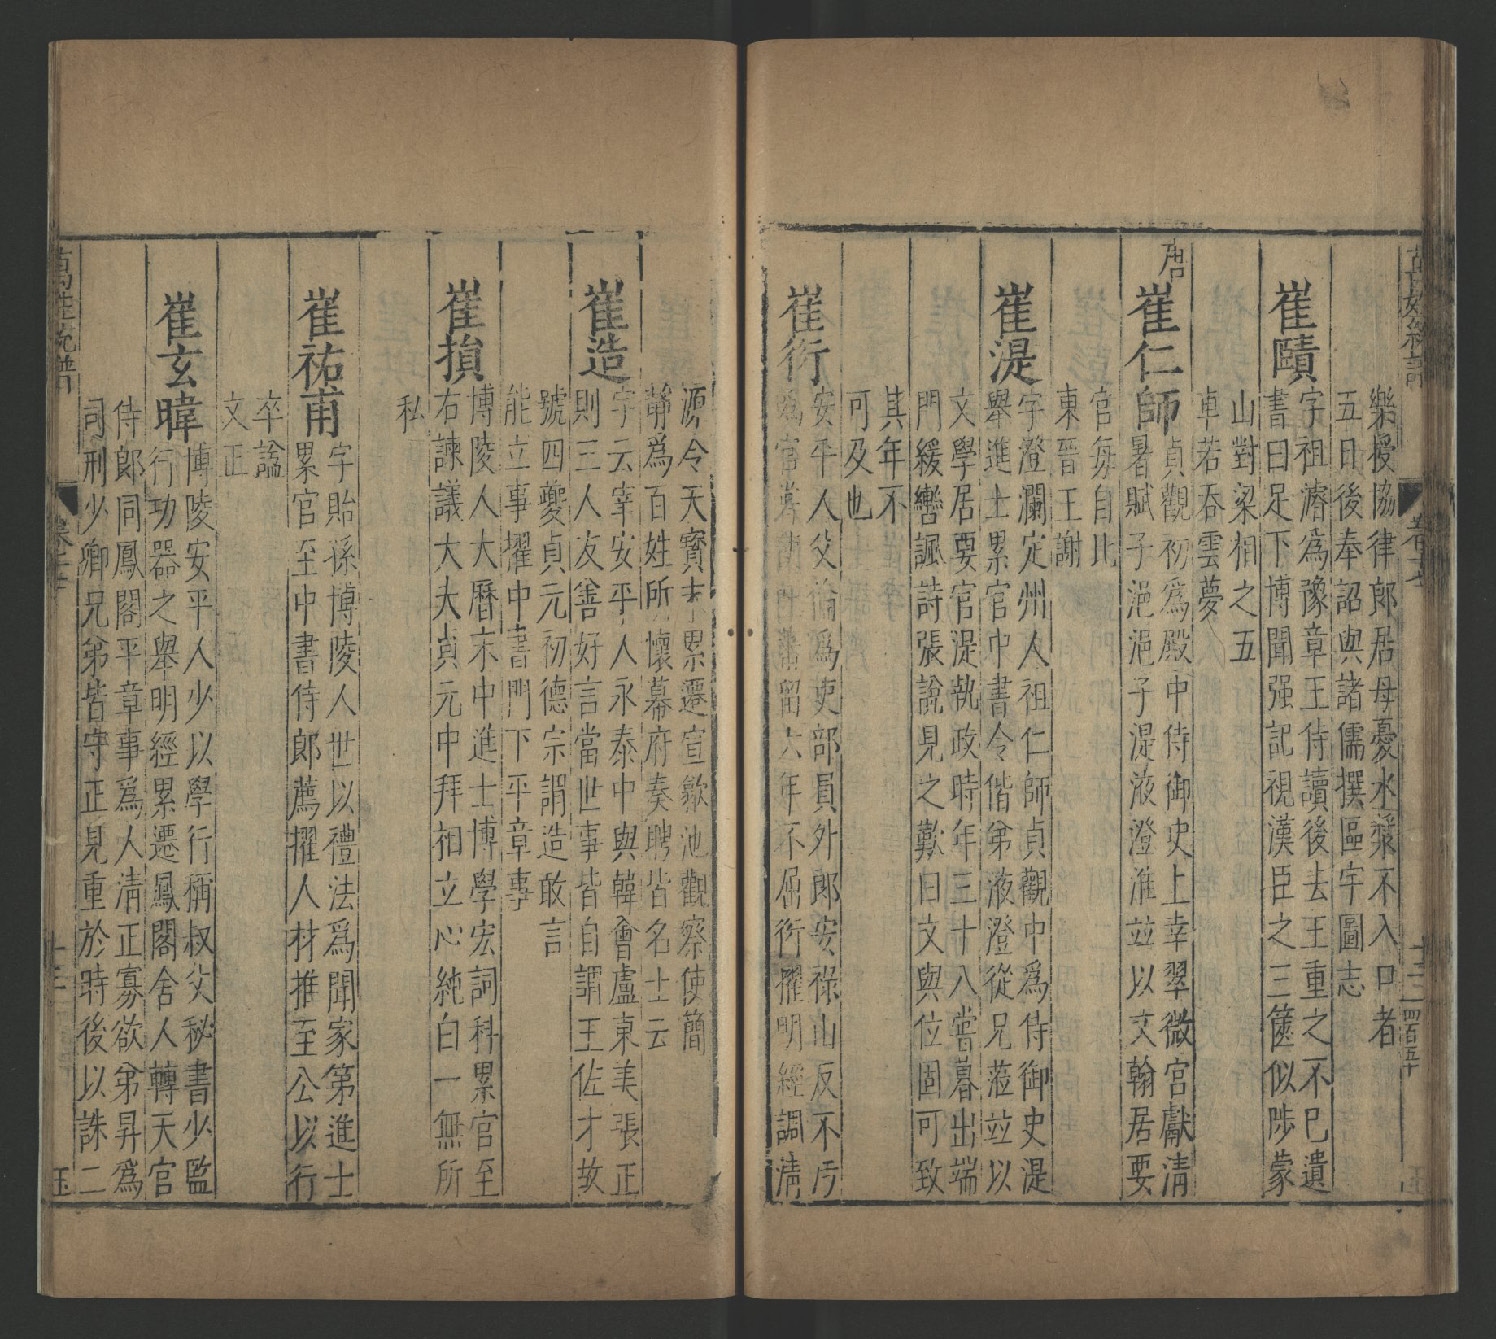 樂授協律郎居母憂水漿不入口者
五日後奉詔與諸儒撰區宇圖志
崔賾
字祖濬爲豫章王侍讀後去王重之不已遺
書曰足下博聞强記視漢臣之三篋似陟蒙
山對梁相之五
車若吞雲夢
唐
崔仁師
貞觀初爲殿中侍御史上幸翠微宮獻清
暑賦子浥浥子湜液澄淮竝以文翰居要
官每自比
東晉王謝
崔湜
字澄瀾定州人祖仁師貞觀中爲侍御史湜
舉進士累官中書令偕弟液澄從兄蒞竝以
文學居要官湜執政時年三十八嘗暮出端
門緩轡諷詩張說見之歎曰文與位固可致
其年不
可及也
崔衍
安平人父倫爲吏部員外郎安祿山反不汚
爲官
留六年不屈衍擢明經調淸
源令天寳末累遷宣歙池觀察使簡
靜爲百姓所懷幕府奏聘皆名士云
崔造
字云宰安平人永泰中與韓會盧東美張正
則三人友善好言當世事皆自謂王佐才故
號四夔貞元初德宗謂造敢言
能立事擢中書門下平章事
崔損
博陵人大曆末中進士博學宏詞科累官至
右諫議大夫貞元中拜相立心純白一無所
私
崔祐甫
字貽孫博陵人世以禮法爲聞家第進士
累官至中書侍郎薦擢人材推至公以行
卒諡
文正
崔玄暐
博陵安平人少以學行稱叔父秘書少監
行功器之舉明經累遷鳳閣舍人轉天官
侍郎同鳳閣平章事爲人淸正寡欲弟昇爲
司刑少卿兄弟皆守正見重於時後以誅二
萬姓統譜